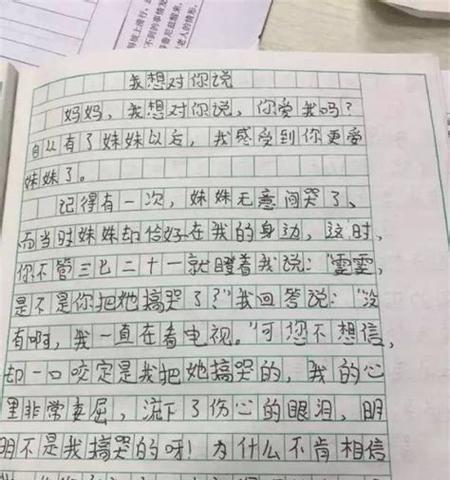 我想对你说
妈妈，我想对你说，你爱我吗？
自从有了妹妹以后，我感受到你更爱
妹妹了。
记得有一次，妹妹无意间哭了、
而当时妹妹却恰好在我的身边，这时，
你不管三七二十一就瞪着我说：“雯雯，
是不是你把她搞哭了？”我回答说：“没
有啊，我一直在看电视。”可您不想信，
却一口咬定是我把她搞哭的，我的心
里非常委屈，流下了伤心的眼泪，明
明不是我搞哭的呀！为什么不肯相信